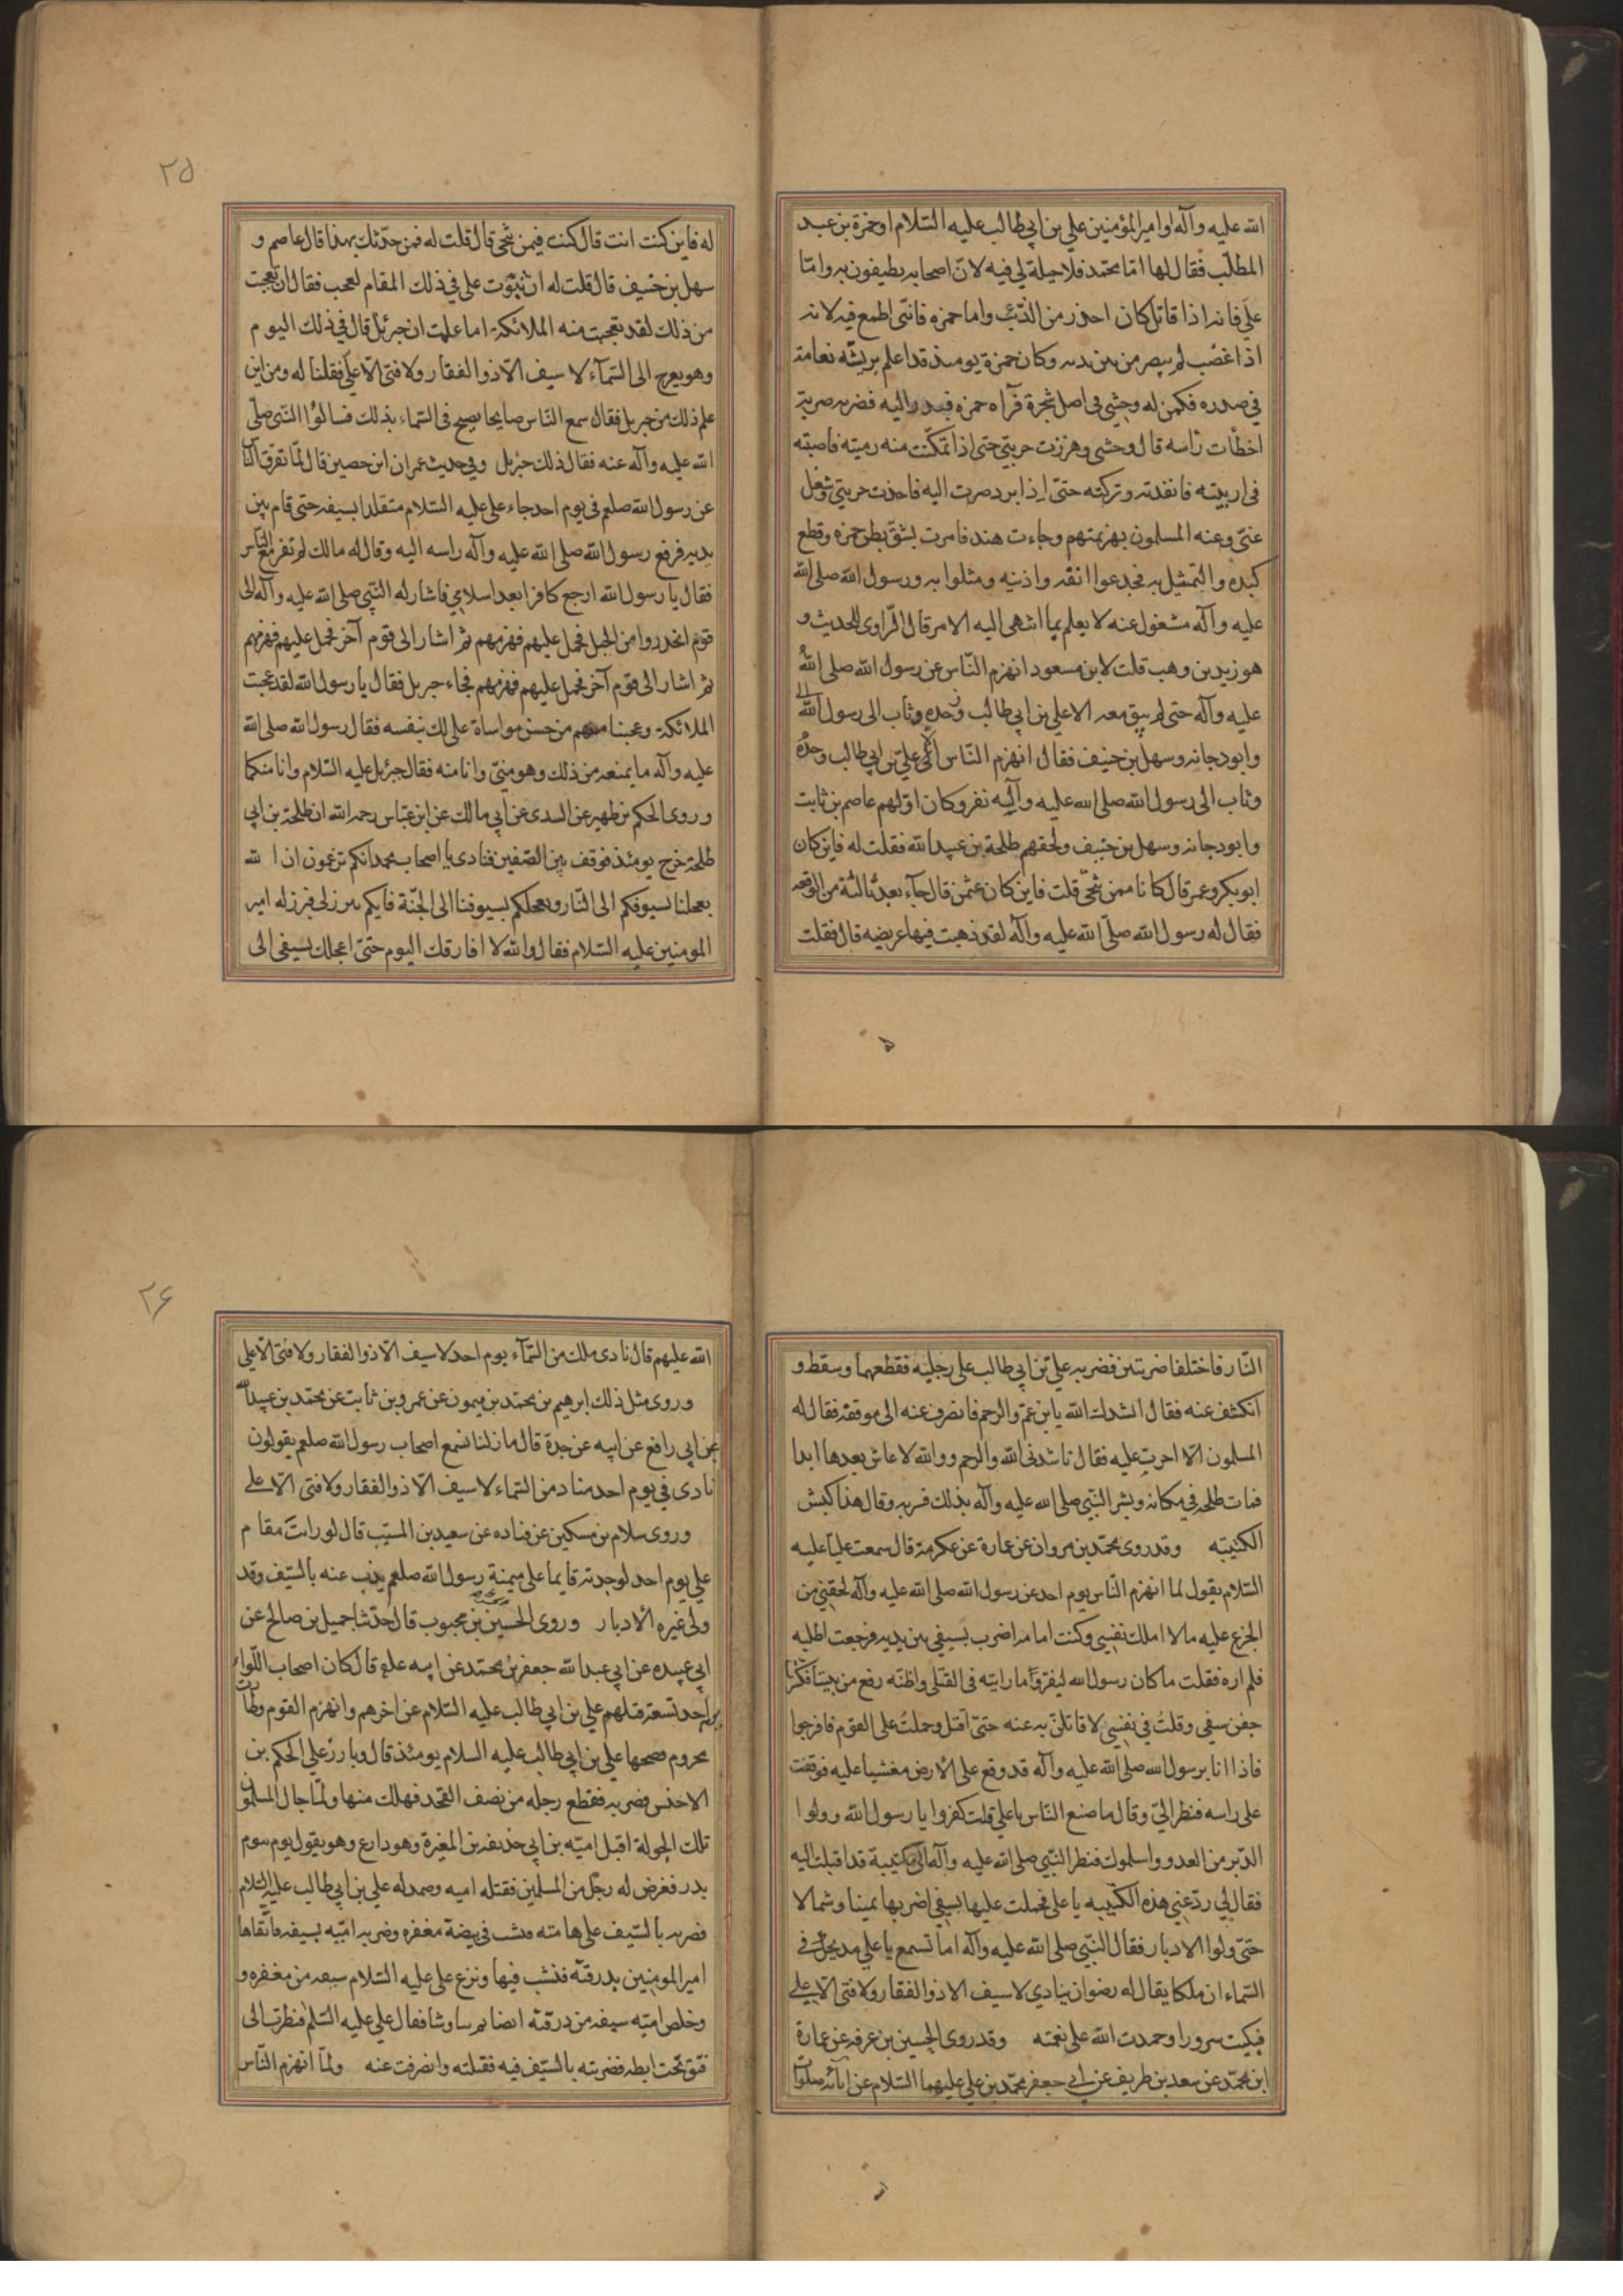 الله عليه وآله او امير المؤمنين علي بن ابي طالب عليه السّلام او حمزة بن عبد
المطّلب فقال لها امّا محمّد فلا حيلة لي فيه لانّ اصحابه يطيفون به وامّا
علي فانه اذا قاتل كان احذر من الذّئب واما حمزه فانّي اطمع فيه لانه
اذا غضب لم يبصر من بين يديه وكان حمزة يومئذ قد اعلم بريشة نعامة
في صدره فكمن له وحشي في اصل شجرة فرآه حمزه فبدر اليه فضربه ضربة
اخطأت رأسه قال وحشي وهززت حربتي حتى اذا تمكّنت منه رميته فاصبته
في اربيته فانفذته وتركته حتىّ اذا برد صرت اليه فاخذت حربتي وشغل
عنّي وعنه المسلمون بهزيمتهم وجاءت هند فامرت بشقّ بطن حمزه وقطع
كبده والتمثيل به فجدعوا انفه واذنيه ومثلوا به ورسول الله صلى الله
عليه وآله مشغول عنه لا يعلم بما انتهى اليه الامر قال الراوى للحديث و
هو زيد بن وهب قلت لابن مسعود انهزم النّاس عن رسول الله صلى الله
عليه وآله حتى لم يبق معه الا علي بن ابي طالب وحده وثاب الى رسول الله
وابو دجانه وسهل بن حنيف فقال انهزم النّاس الا علي بن ابي طالب وحده
وثاب الى رسول الله صلى الله عليه وآله نفر وكان اوّلهم عاصم بن ثابت
وابو دجانه وسهل بن حنيف ولحقهم طلحة بن عبيد الله فقلت له فاين كان
ابو بكر وعمر قال كانا ممن تنحّى قلت فاين كان عثمن قال جاء بعد ثالثة من الوقعه
فقال له رسول الله صلّى الله عليه وآله لقد ذهبت فيها عريضه قال فقلت
٢٥
له فاين كنت انت قال كنت فيمن تنحّى قال قلت له فمن حدّثك بهذا قال عاصم و
سهل بن حنيف قال قلت له ان ثبوت علي في ذلك المقام لعجب فقال ان تعجبت
من ذلك لقد تعجبت منه الملائكة اما علمت ان جبرئل قال في ذلك اليوم
وهو يعرج الى السّماء لا سيف الّا ذو الفقار ولا فتى الّا علي فقلنا له ومن اين
علم ذلك من جبريل فقال سمع النّاس صايحا يصيح في السّماء بذلك فسالوا النّبي صلّى
الله عليه وآله عنه فقال ذلك جبرئل وفي حديث عمران ابن حصين قال لمّا تفرق النّاس
عن رسول الله صلعم في يوم احد جاء علي عليه السّلام متقلدا بسيفه حتى قام بين
يديه فرفع رسول الله صلى الله عليه وآله راسه اليه وقال له مالك لم تفر مع الناس
فقال يا رسول الله ارجع كافرا بعد اسلامي فاشار له النّبي صلى الله عليه وآله الى
قوم انحدروا من الجبل فحمل عليهم فهزمهم ثمّ اشار الى قوم آخر فحمل عليهم فهزمهم
ثمّ اشار الى قوم آخر فحمل عليهم فهزمهم فجاء جبريل فقال يا رسول الله لقد عجبت
الملائكة وعجبنا معهم من حسن مواساة علي لك بنفسه فقال رسول الله صلى الله
عليه وآله ما يمنعه من ذلك وهو منّي وانا منه فقال جبرئل عليه السّلام وانا منكما
وروى الحكم بن ظهير عن السدى عن ابي مالك عن ابن عبّاس رحمه الله ان طلحة بن ابي
طلحة خرج يومئذ فوقف بين الصّفين فنادى يا اصحاب محمد انكم تزعمون ان الله
يعجلنا بسيوفكم الى النّار ويعجلكم بسيوفنا الى الجنّة فايكم يبرز لي فبرز له امير
المومنين عليه السّلام فقال والله لا افارقك اليوم حتىّ اعجلك بسيفي الى
النّار فاختلفا ضربتين فضربه علي بن ابي طالب على رجليه فقطعهما وسقط و
انكشف عنه فقال انشدك الله يا بن عمّ والرحم فانصرف عنه الى موقفه فقال له
المسلمون الّا اجرت عليه فقال ناشدني الله والرحم ووالله لا عاش بعدها ابدا
فمات طلحه في مكانه وبشر النّبي صلى الله عليه وآله بذلك فسر به وقال هذا كبش
الكتيبه وقد روى محمّد بن مروان عن عمارة عن عكرمة قال سمعت عليّا عليه
السّلام يقول لما انهزم النّاس يوم احد عن رسول الله صلى الله عليه وآله لحقني من
الجزع عليه مالا املك نفسي وكنت امامه اضرب بسيفي بين يديه فرجعت اطلبه
فلم اره فقلت ما كان رسول الله ليفر وما رايته في القتلى واظنّه رفع من بيننا فكسرت
جفن سيفي وقلت في نفسي لاقاتلنّ به عنه حتىّ اقتل وحملت على القوم فافرجوا
فاذا انا برسول الله صلى الله عليه وآله قد وقع على الارض مغشيا عليه فوقفت
على راسه فنظر اليّ وقال ما صنع النّاس يا علي قلت كفروا يا رسول الله وولوا
الدّبر من العدو واسلموك فنظر النّبي صلى الله عليه وآله الى كتيبة قد اقبلت اليه
فقال لي ردّ عنّي هذه الكتيبه يا علي فحملت عليها بسيفي اضربها يمينا وشمالا
حتىّ ولوا الادبار فقال النّبي صلى الله عليه وآله اما تسمع يا علي مديحك في
السّماء ان ملكا يقال له رضوان ينادي لا سيف الا ذو الفقار ولا فتى الّا علي
فبكيت سرورا وحمدت الله على نعمته وقد روى الحسين بن عرفه عن عمارة
ابن محمّد عن سعد بن طريف عن ابي جعفر محمّد بن علي عليهما السّلام عن آبائه صلوات
٢۶
الله عليهم قال نادى ملك من السّماء يوم احد لا سيف الّا ذو الفقار ولا فتى الّا علي
وروى مثل ذلك ابرهيم بن محمّد بن ميمون عن عمرو بن ثابت عن محمّد بن عبيد الله
عن ابي رافع عن ابيه عن جدة قال ما زلنا نسمع اصحاب رسول الله صلعم يقولون
نادى في يوم احد مناد من السّماء لا سيف الّا ذو الفقار ولا فتى الّا علي
وروى سلام بن مسكين عن قتاده عن سعيد بن المسيّب قال لو رايت مقام
علي يوم احد لوجدته قايما على ميمنة رسول الله صلعم يذب عنه بالسّيف وقد
ولى غيره الادبار وروى الحسين بن محبوب قال حدّثنا جميل بن صالح عن
ابي عبيده عن ابي عبد الله جعفر بن محمّد عن ابيه قال كان اصحاب اللّواء
يوم احد تسعة قتلهم علي بن ابي طالب عليه السّلام عن اخرهم وانهزم القوم وطارت
مخزوم فضحها علي بن ابي طالب عليه السلام يومئذ قال وبارز علي الحكم بن
الاخنس فضربه فقطع رجله من نصف الفخذ فهلك منها ولمّا جال المسلمون
تلك الجولة اقبل اميّه بن ابي حذيفه بن المغيرة وهو دارع وهو يقول يوم بيوم
بدر فعرض له رجل من المسلمين فقتله اميه وصمد له علي بن ابي طالب عليه السّلام
فضربه بالسّيف على هامته فنشب في بيضة مغفره وضربه اميّه بسيفه فاتّقاها
امير المومنين بدرقته فنشب فيها ونزع علي عليه السّلام سيفه من مغفره و
وخلص اميّه سيفه من درقته ايضا ثم تناوشا فقال علي عليه السّلم فنظرت الى
فتق تحت ابطه فضربته بالسّيف فيه فقتلته وانصرفت عنه ولمّا انهزم النّاس